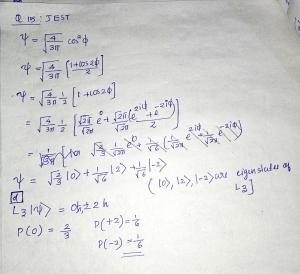 Q 115 : JEST
ψ = √(4/3π) cos²ϕ
ψ = √(4/3π) [(1+cos2ϕ)/2]
ψ = √(4/3π) 1/2 [1+cos2ϕ]
= √(4/3π) 1/2 [√2π/√2π e⁰ + √2π/√2π (e^{2iϕ} + e^{-2iϕ})/2]
= √(2/3) 1/√2π e⁰ + 1/√6 (1/√2π e^{2iϕ} + 1/√2π e^{-2iϕ})
ψ = √(2/3) |0⟩ + 1/√6 |2⟩ + 1/√6 |-2⟩
(|0⟩, |2⟩, |-2⟩ are eigenstates of L3]
L3 |ψ⟩ = 0ħ, ± 2ħ
P(0) = 2/3 P(+2) = 1/6
P(-2) = 1/6